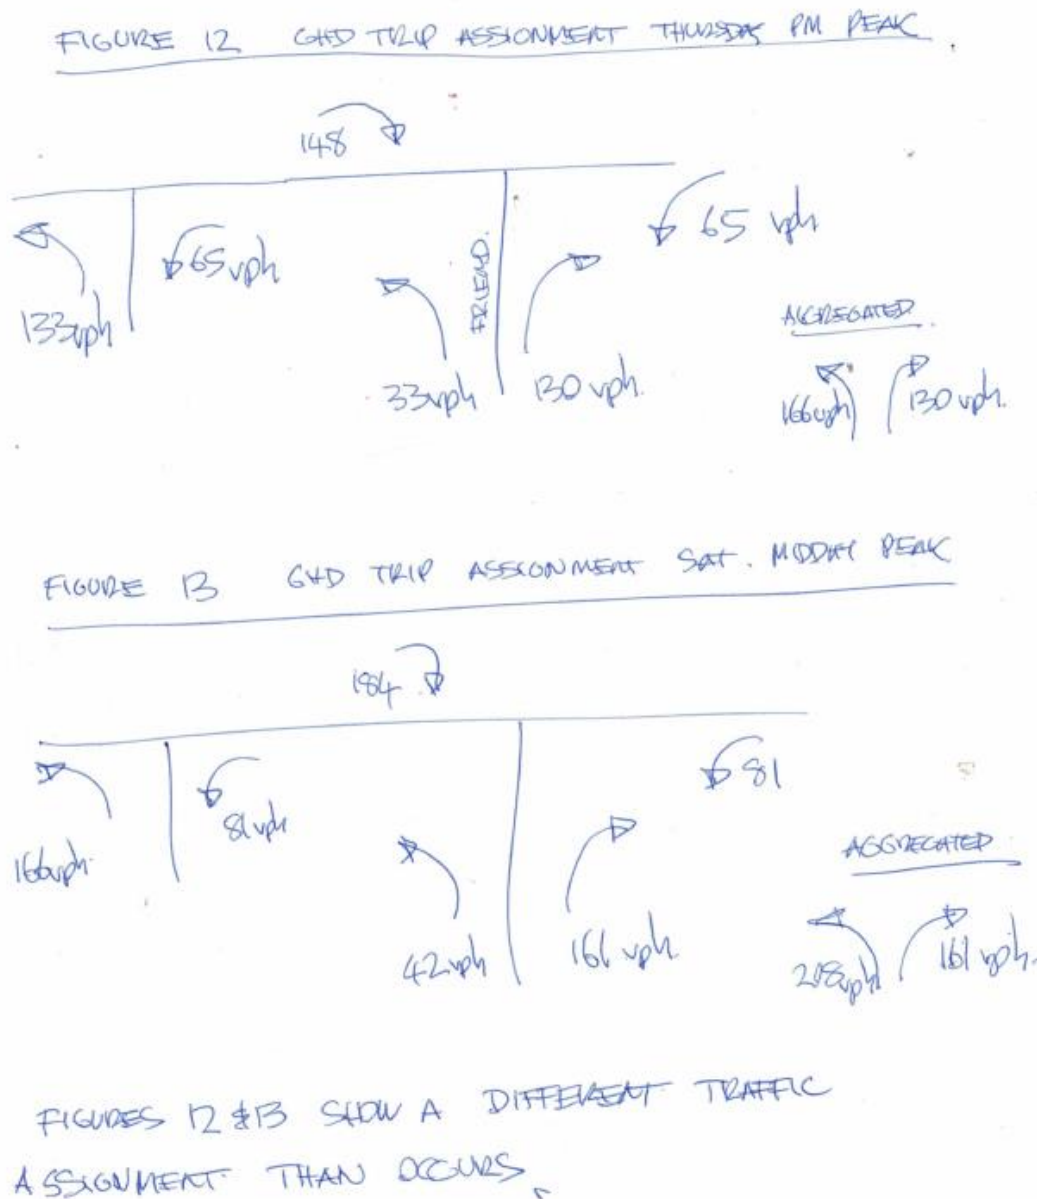 FIGURE 12 GHD TRIP ASSIGNMENT THURSDAY PM PEAK
148
133vph
65vph
33vph
FRIEND.
130 vph.
65 vph
AGGREGATED
166vph
130 vph.
FIGURE 13 GHD TRIP ASSIGNMENT SAT. MIDDAY PEAK
184
166vph.
81vph
42vph
161 vph.
81
AGGREGATED
208vph
161 vph.
FIGURES 12 & 13 SHOW A DIFFERENT TRAFFIC
ASSIGNMENT THAN OCCURS